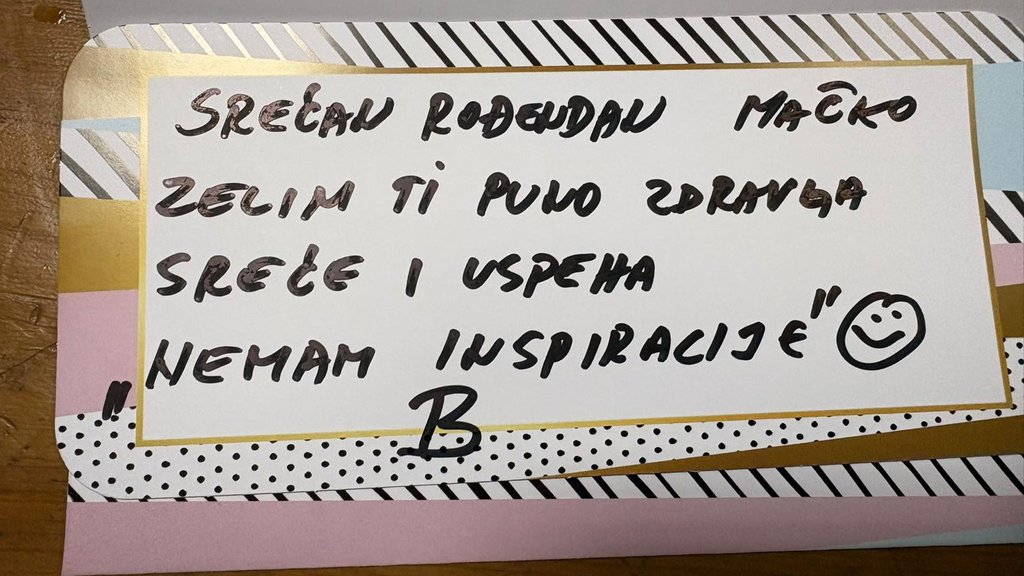 SREĆAN ROĐENDAN MAČKO
ZELIM TI PUNO ZDRAVLJA
SREĆE I USPEHA
"NEMAM INSPIRACIJE"
B